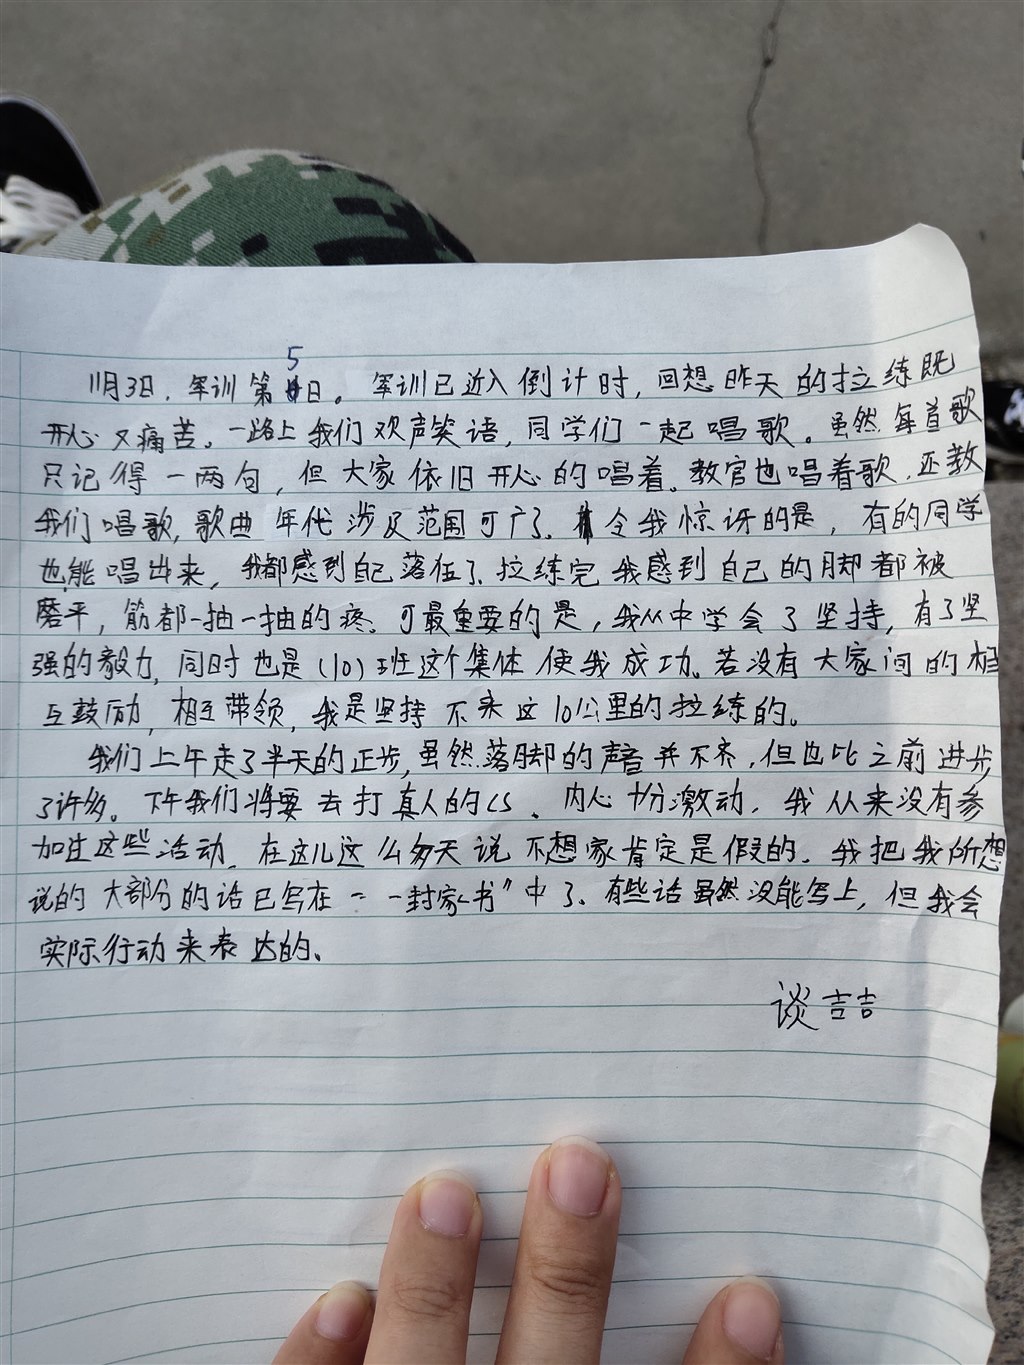 11月3日，军训第5日。军训已近入倒计时，回想昨天的拉练既
开心又痛苦。一路上我们欢声笑语，同学们一起唱歌。虽然每首歌
只记得一两句，但大家依旧开心的唱着。教官也唱着歌，还教
我们唱歌，歌曲年代涉及范围可广了。令我惊讶的是，有的同学
也能唱出来，我都感到自己落伍了。拉练完我感到自己的脚都被
磨平，筋都一抽一抽的疼。可最重要的是，我从中学会了坚持，有了坚
强的毅力，同时也是（10）班这个集体使我成功。若没有大家间的相
互鼓励，相互带领，我是坚持不来这10公里的拉练的。
我们上午走了半天的正步，虽然落脚的声音并不齐，但也比之前进步
了许多。下午我们将要去打真人的CS、内心十分激动，我从来没有参
加过这些活动。在这儿这么多天说不想家肯定是假的。我把我所想
说的大部分的话已写在“一封家书”中了。有些话虽然没能写上，但我会
实际行动来表达的。
谈喆